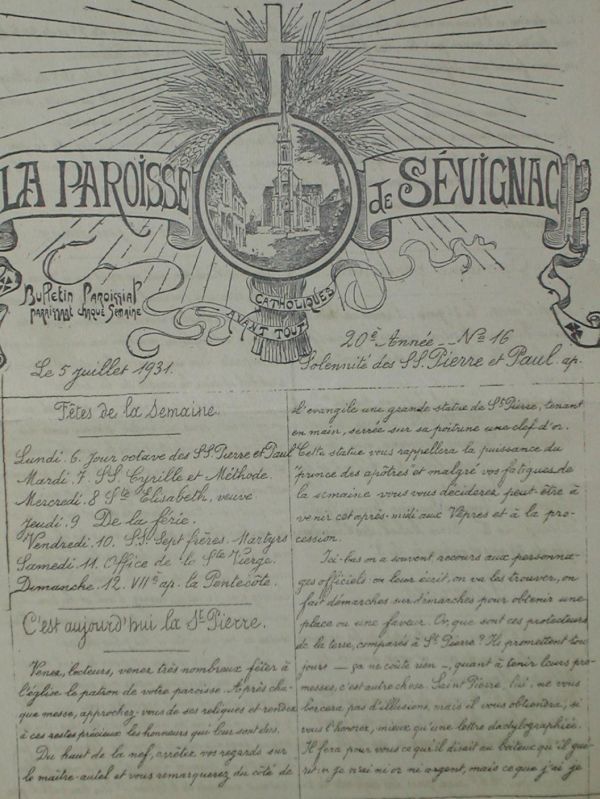 LA PAROISSE de SÉVIGNAC
CATHOLIQUES
AVANT TOUT
Bulletin Paroissial
paraissant chaque semaine
20e Année -- No 16
Le 5 juillet 1931.
Solennité des S.S. Pierre et Paul ap.
Fêtes de la Semaine
Lundi. 6. Jour octave des SS Pierre et Paul
Mardi. 7. SS. Cyrille et Méthode.
Mercredi. 8 Ste Elisabeth, veuve
Jeudi. 9 De la férie.
Vendredi. 10. S.S. Sept frères. Martyrs
Samedi. 11. Office de la Ste Vierge.
Dimanche. 12. VIIe ap. la Pentecôte.
C'est aujourd'hui la St Pierre.
Venez, lecteurs, venez très nombreux fêter à
l'église le patron de votre paroisse. Après cha-
que messe, approchez-vous de ses reliques et rendez
à ces restes précieux les honneurs qui leur sont dus.
Du haut de la nef, arrêtez vos regards sur
le maître-autel et vous remarquerez du côté de
l'évangile une grande statue de St Pierre, tenant
en main, serrée sur sa poitrine une clef d'or.
Cette statue vous rappellera la puissance du
"prince des apôtres" et malgré vos fatigues de
la semaine vous vous déciderez peut-être à
venir cet après-midi aux Vêpres et à la pro-
cession.
Ici-bas on a souvent recours aux personna-
ges officiels: on leur écrit, on va les trouver, on
fait démarches sur démarches pour obtenir une
place ou une faveur. Or, que sont ces protecteurs
de la terre, comparés à St Pierre? Ils promettent tou
jours — ça ne coûte rien —, quant à tenir leurs pro-
messes, c'est autre chose. Saint Pierre, lui, ne vous
bercera pas d'illusions, mais il vous obtiendra, si
vous l'honorez, mieux qu'une lettre dactylographiée.
Il fera pour vous ce qu'il disait au boiteux qu'il gué-
rit: "Je n'ai ni or ni argent, mais ce que j'ai je